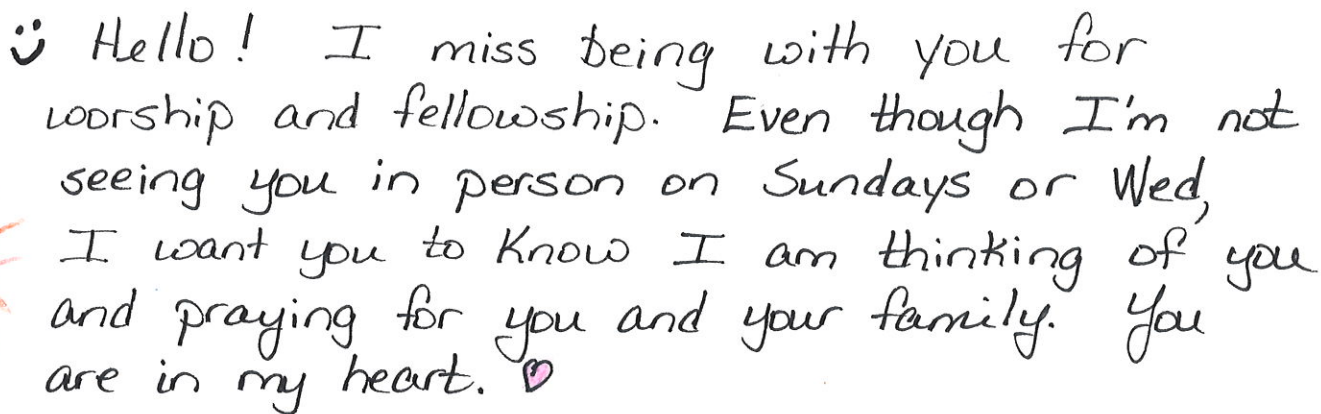 Hello! I miss being with you for
worship and fellowship. Even though I'm not
seeing you in person on Sundays or Wed,
I want you to know I am thinking of you
and praying for you and your family. You
are in my heart.